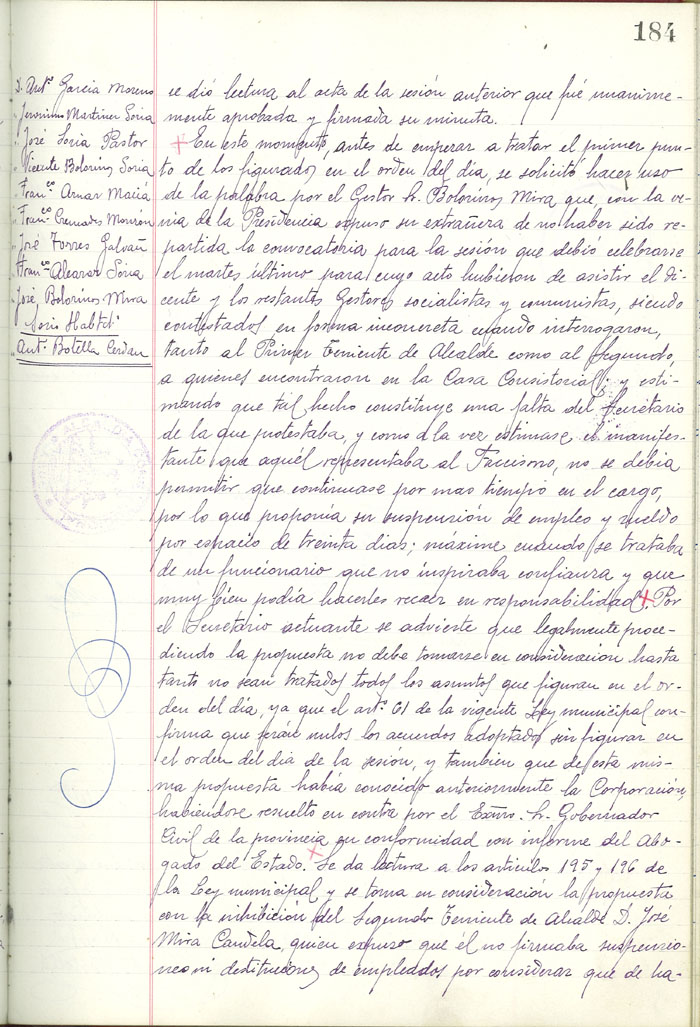 184
D. Antº García Moreno
" Jeronimo Martinez Soria
" José Soria Pastor
" Vicente Bolorinos Soria
" Franco Aznar Maciá
" Franco Cremades Monzón
" José Torres Galvañ
" Franco Alcaraz Soria
" José Bolorinos Mira
Sorio Habtdº
" Antº Botella Cerdan
se dió lectura al acta de la sesión anterior que fué unanime-
mente aprobada y firmada su minuta.
En este momento, antes de empezar a tratar el primer pun-
to de los figurados en el orden del dia, se solicitó hacer uso
de la palabra por el Gestor Sr. Bolorinos Mira que, con la ve-
nia de la Presidencia expuso su extrañeza de no haber sido re-
partida la convocatoria para la sesión que debió celebrarse
el martes último para cuyo acto hubieron de asistir el di-
cente y los restantes Gestores socialistas y comunistas, siendo
contestados en forma inconcreta cuando interrogaron,
tanto al Primer Teniente de Alcalde como al Segundo,
a quienes encontraron en la Casa Consistorial; y esti-
mando que tal hecho constituye una falta del Secretario
de la que protestaba, y como a la vez estimase el manifes-
tante que aquél representaba al Faccismo, no se debia
permitir que continuase por mas tiempo en el cargo,
por lo que proponía su suspensión de empleo y sueldo
por espacio de treinta dias; máxime cuando se trataba
de un funcionario que no inspiraba confianza y que
muy bien podía hacerles recaer en responsabilidad. Por
el Secretario actuante se advierte que legalmente proce-
diendo la propuesta no debe tomarse en consideracion hasta
tanto no sean tratados todos los asuntos que figuran en el or-
den del dia, ya que el artº 61 de la vigente Ley municipal con-
firma que serán nulos los acuerdos adoptados sin figurar en
el orden del dia de la sesión, y tambien que de esta mis-
ma propuesta había conocido anteriormente la Corporación,
habiendose resuelto en contra por el Exmo. Sr. Gobernador
Civil de la provincia en conformidad con informe del Abo-
gado del Estado. Se da lectura a los articulos 195 y 196 de
la Ley municipal y se toma en consideración la propuesta
con la inhibición del Segundo Teniente de Alcalde D. José
Mira Candela, quien expuso que él no firmaba suspensio-
nes ni destituciones de empleados por considerar que de ha-